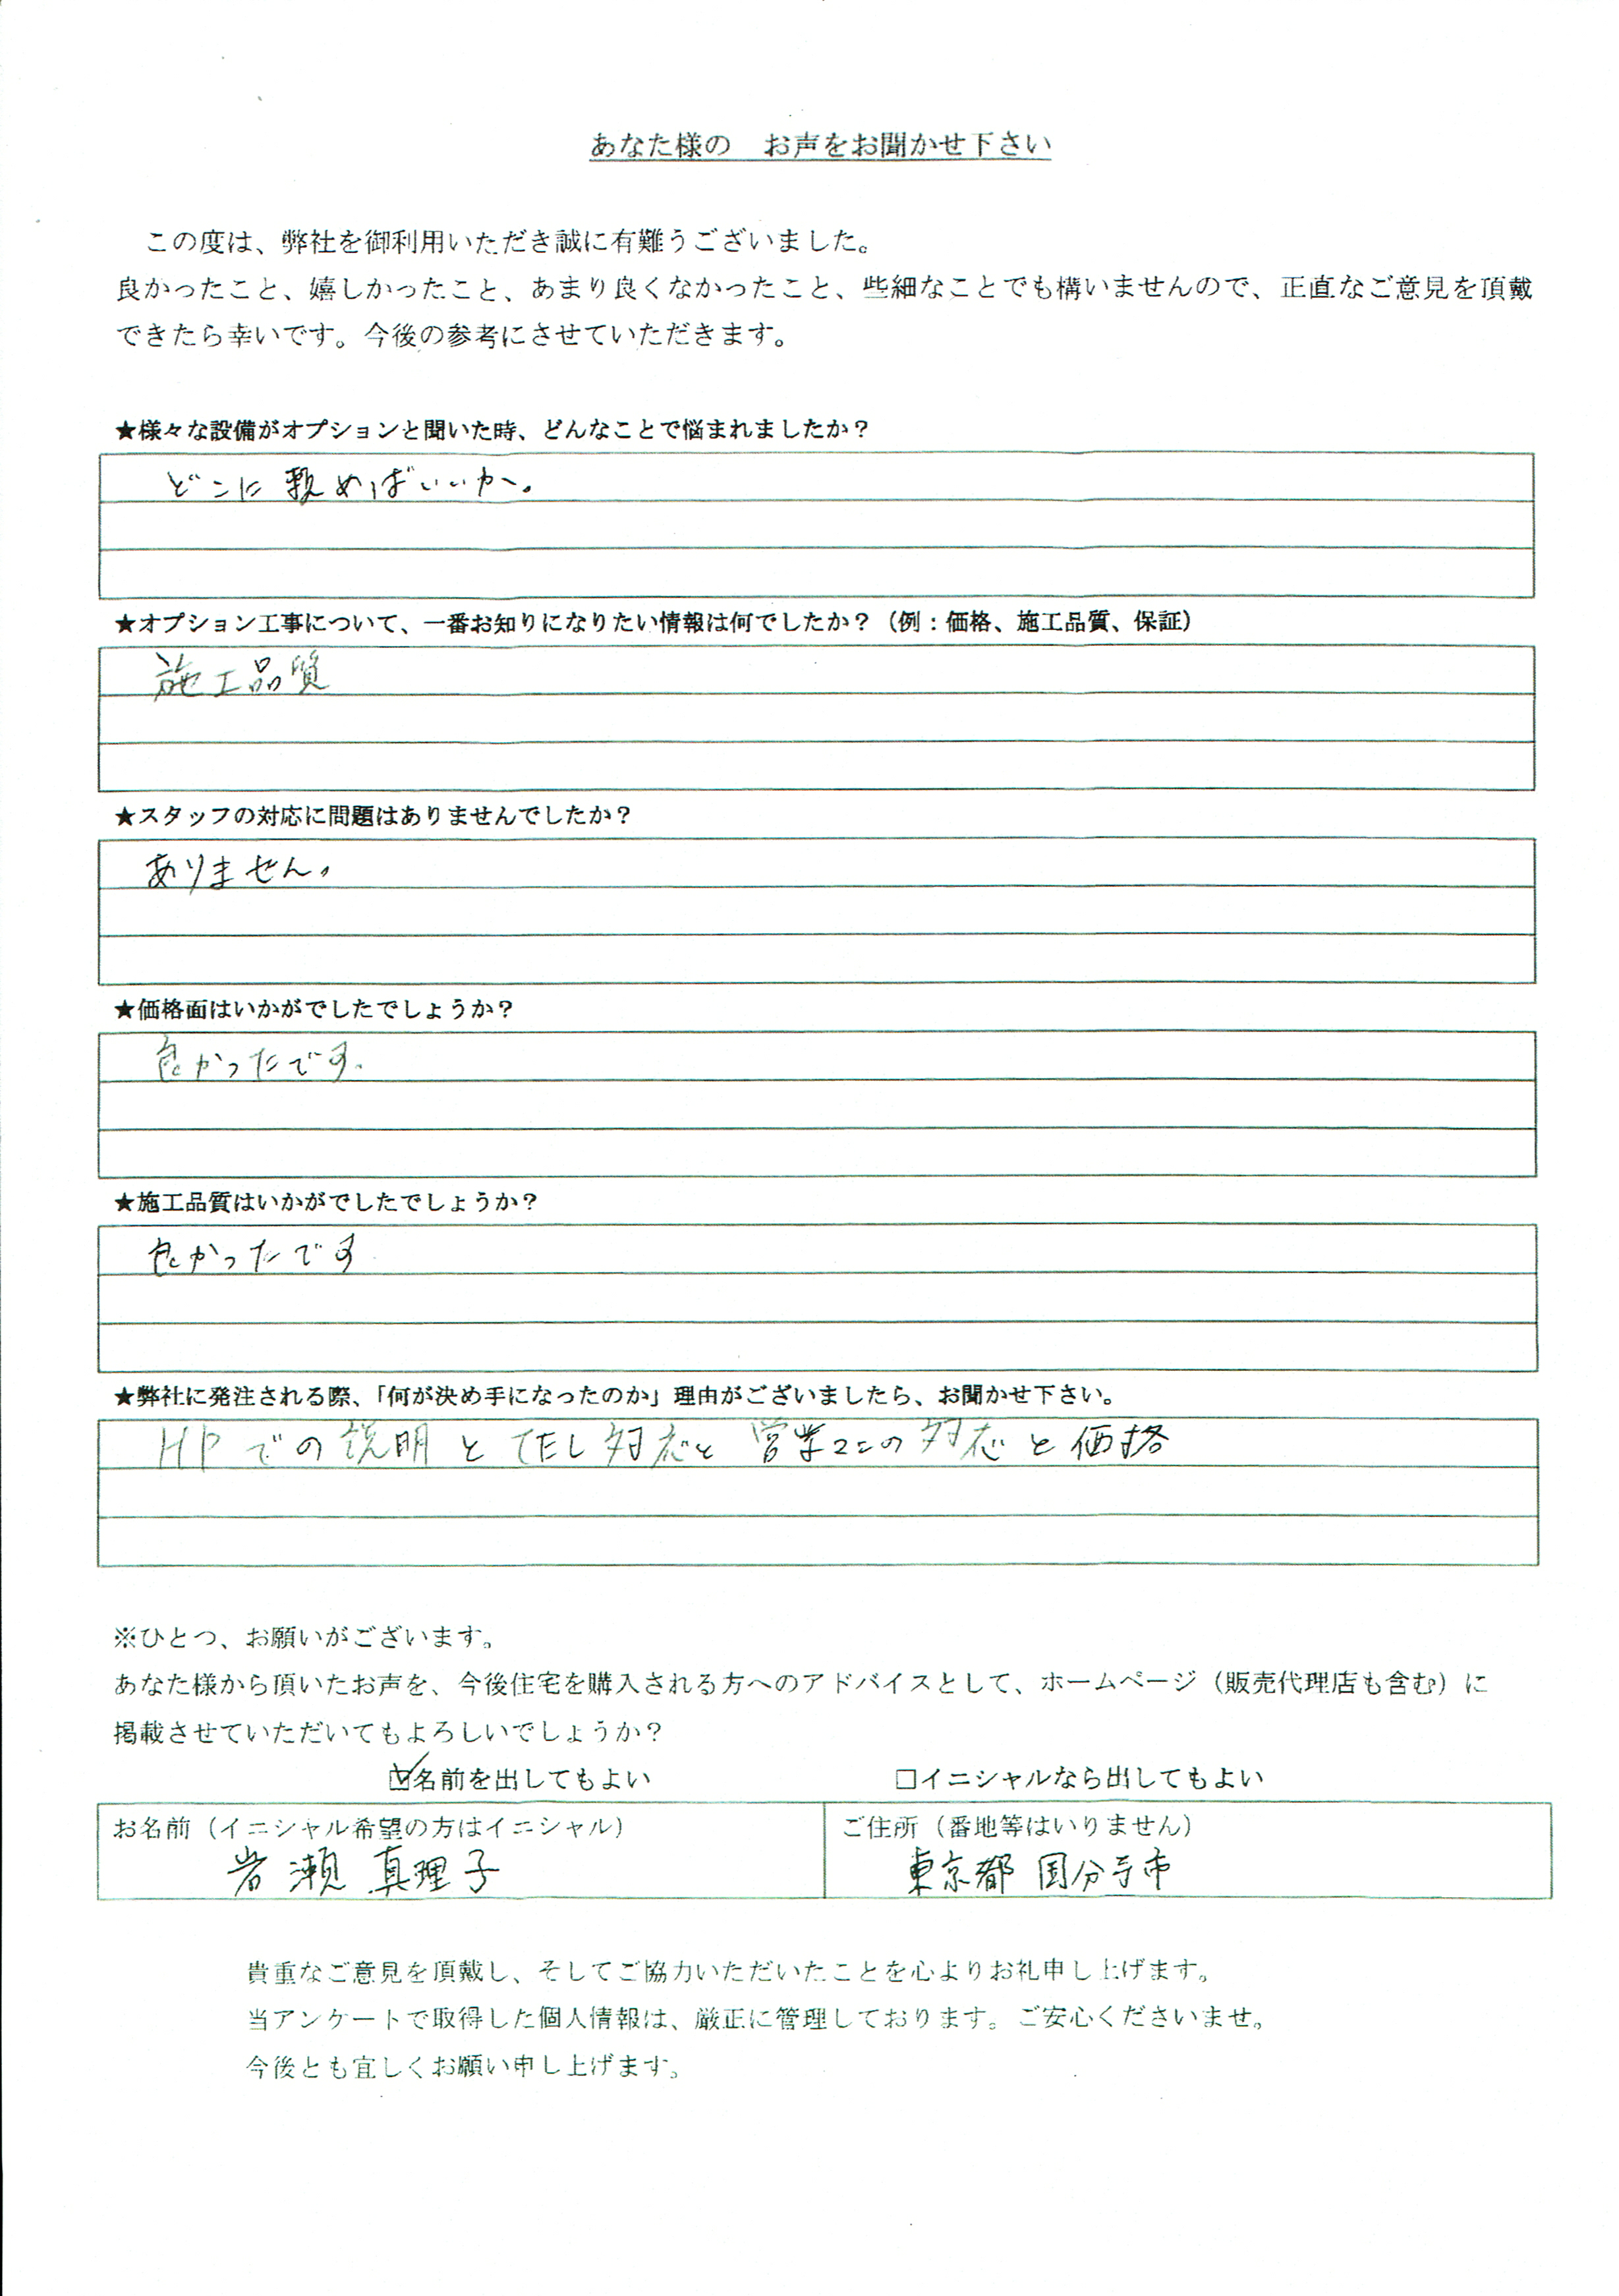 あなた様の　お声をお聞かせ下さい
この度は、弊社を御利用いただき誠に有難うございました。
良かったこと、嬉しかったこと、あまり良くなかったこと、些細なことでも構いませんので、正直なご意見を頂戴
できたら幸いです。今後の参考にさせていただきます。
★様々な設備がオプションと聞いた時、どんなことで悩まれましたか？
どこに頼めばいいか。
★オプション工事について、一番お知りになりたい情報は何でしたか？（例：価格、施工品質、保証）
施工品質
★スタッフの対応に問題はありませんでしたか？
ありません。
★価格面はいかがでしたでしょうか？
良かったです。
★施工品質はいかがでしたでしょうか？
良かったです
★弊社に発注される際、「何が決め手になったのか」理由がございましたら、お聞かせ下さい。
HPでの説明とTEL対応と営業マンの対応と価格
※ひとつ、お願いがございます。
あなた様から頂いたお声を、今後住宅を購入される方へのアドバイスとして、ホームページ（販売代理店も含む）に
掲載させていただいてもよろしいでしょうか？
☑名前を出してもよい　□イニシャルなら出してもよい
お名前（イニシャル希望の方はイニシャル）　ご住所（番地等はいりません）
岩瀬 真理子　東京都 国分寺市
貴重なご意見を頂戴し、そしてご協力いただいたことを心よりお礼申し上げます。
当アンケートで取得した個人情報は、厳正に管理しております。ご安心くださいませ。
今後とも宜しくお願い申し上げます。